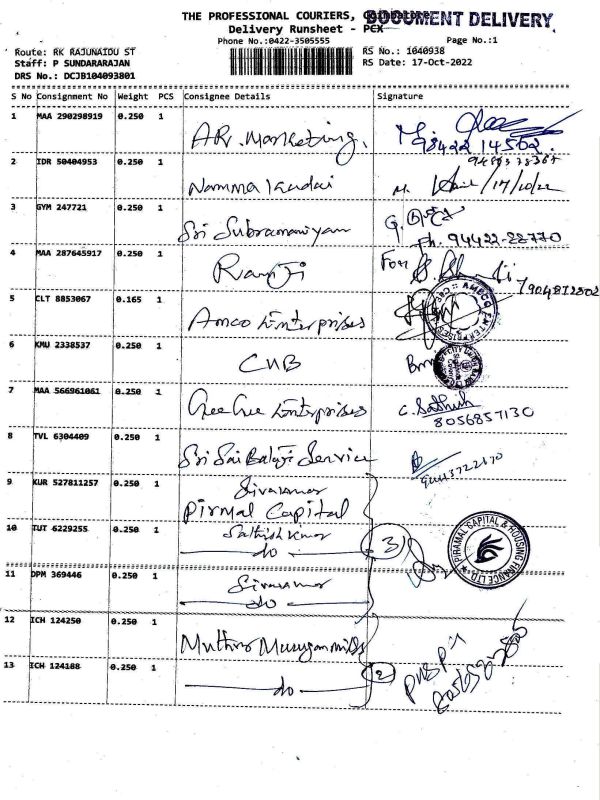 THE PROFESSIONAL COURIERS, Coimbatore
DOCUMENT DELIVERY
Delivery Runsheet - PCX
Phone No.:0422-3505555
Page No.:1
Route: RK RAJUNAIDU ST
RS No.: 1040938
Staff: P SUNDARARAJAN
RS Date: 17-Oct-2022
DRS No.: DCJB104093801
S No Consignment No Weight PCS Consignee Details Signature
1 MAA 290298919 0.250 1 AR. Marketing, 98422 14562
2 IDR 50404953 0.250 1 Namma Kadai 17/10/22
3 GYM 247721 0.250 1 Sri Subramaniyam Ph. 94422-88770
4 MAA 287645917 0.250 1 Ramji For
5 CLT 8853067 0.165 1 Amco Enterprises
AMBCO ENTERPRISES
6 KMU 2338537 0.250 1 CUB
7 MAA 566961061 0.250 1 Gee Gee Enterprises C. Sathish
8056857130
8 TVL 6304409 0.250 1 Sri Sai Balaji Service
9 KUR 527811257 0.250 1 Sivakumar
Pirmal Capital
10 TUT 6229255 0.250 1 Sathish Kumar
do 3
PIRAMAL CAPITAL & HOUSING FINANCE LTD.
11 DPM 369446 0.250 1 Sivakumar
do
12 ICH 124250 0.250 1 Muthu Murugan mills
13 ICH 124188 0.250 1 do 2